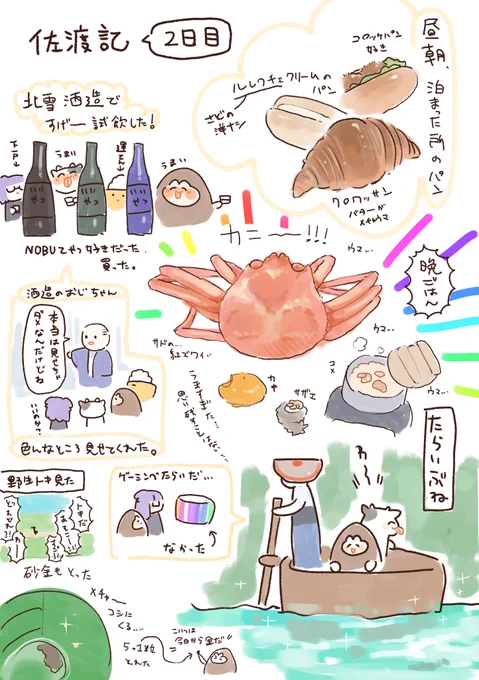 佐渡記
2日目
昼朝、泊まった所のパン
コロッケパン
好き
ルレクチェクリームの
パン
クロワッサン
バターが
北雪酒造で
すげー試飲した!
下戸↓
うまい
うまい
NOBUてやつ好きだった
買った。
カニーー!!!
晩ごはん
ウマ…
ウマ…
ウマ…
サドの…
紅ズワイ…
コメ
カキ
サザエ
うますぎた…
思い残すことはない…
酒造のおじちゃん
本当は見せちゃ
ダメなんだけどね
いいのか?
色んなところ見せてくれた。
野生トキ見た
トキだ
砂金もとった
メチャ
コシに
くる…
5+1粒
とれた
こいつは
今日から金だ!!
ゲーミングたらいだ…
なかった
たらいぶね
わ〜